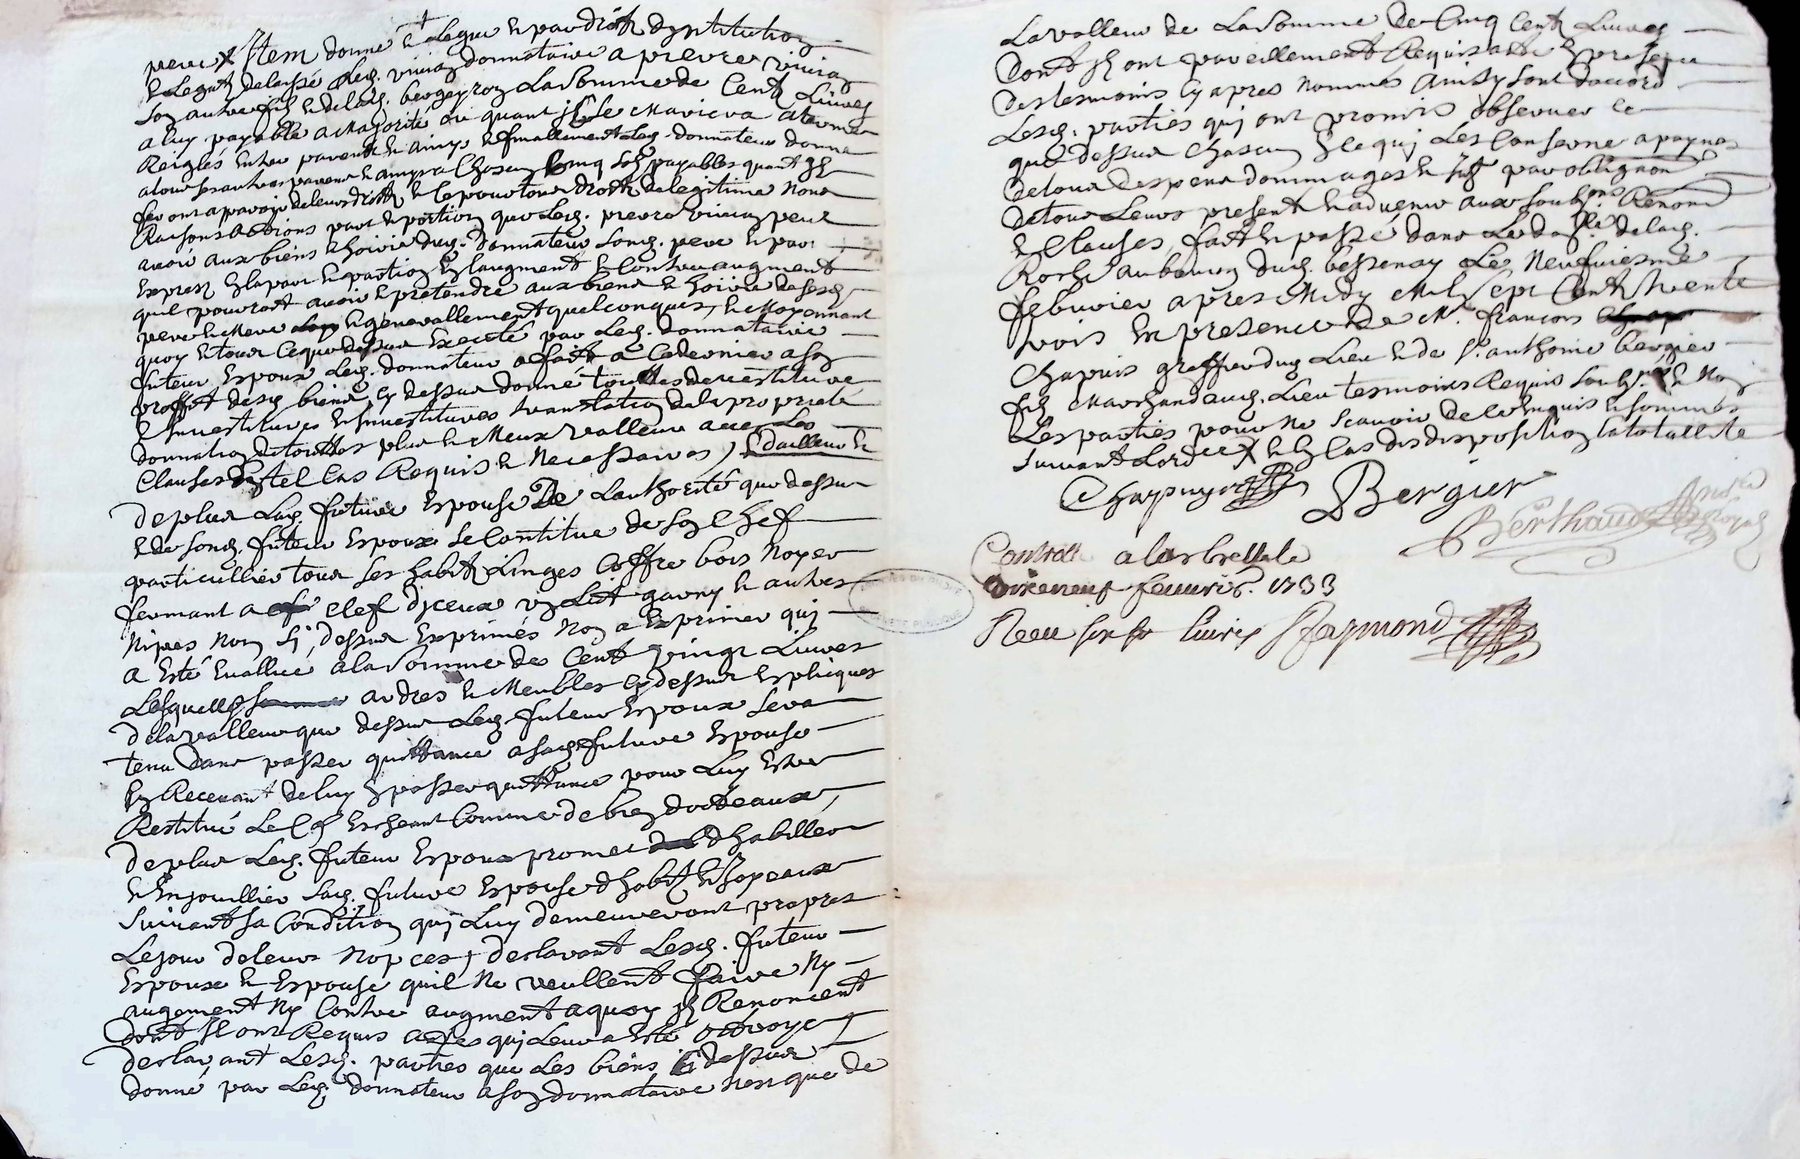 pere x Item donne & legue & par droit dinstitution
& legat delaissé led. vinay donnataire a pierre vinay
son autre fils & de lad. bergeyron la somme de Cent Livres
a luy payable a Majorité ou quant il se Mariera a termes
Reiglés entre parents & amys & finallement led. donnateur donne
a tous ses autres parents & amys a Chascun Cinq sols payables quant ils
feront apparoir de leurs droits & ce pour tous droits de legitime Noms
Raisons actions part & portion que led. pierre vinay peut
avoir aux biens & hoirie dud. donnateur sond. pere & par
Exprez En la part & portion En laugment & Contre augment
quil pourroit avoir & pretendre aux biens & hoirie de sesd.
pere & Mere & generallement quelconques, & Moyennant
quoy & tout Ce que dessus Executé par led. donnataire
futeur Espoux led. donnateur a fait a Ce dernier a son
proffit desd. biens cy dessus donné touttes devestitures
Investitures & Investitures translation de la proprieté
donnation de touttes plus & Mieux valleur avec Les
Clauses En tel Cas Requis & Necessaires, & dailleur &
de plus Lad. future Espouse De Lauthorité que dessus
& de sond. futeur Espoux se Constitue de son Chef
particullier tous ses habits Linges Coffre bois Noyer
fermant a clef dyceux un Lit garny & autres
Nipes Non Cy dessus Exprimés Non a Exprimer quj
a Esté Evallué a la somme de Cent vingt Livres
Lesquelles ardres & Meubles cy dessus Expliqués
de la valleur que dessus Led. futeur Espoux sera
tenu dans passer quittance a sad. future Espouse
En Recevant de luy En passer quittance pour Luy Estre
Restitué Le Cas Escheant Comme de bien dotteaux,
de plus Led. futeur Espoux promet dhabiller
& Enjouillier Sad. future Espouse dhabits & Joyeaux
suivant sa Condition quj Luy demeureront propres
Le jour de leurs Nopces, declarant Lesd. futeur
Espoux & Espouse quil Ne veullent faire Ny
augement Ny Contre augment a quoy ils Renoncent
dont Ils ont Requis actes quj Leur a Esté octroyé
declarant Lesd. parties que Les biens Cy dessus
donné par Led. donnateur a son donnataire Nest que de
La valleur de La somme de Cinq Cent Livres
dont ils ont pareillement Requis acte & presence
des tesmoins Cy apres Nommés Ainsy sont daccord
Lesd. parties quj ont promis observer Ce
que dessus Chascun En Ce quj Les Conserne a paynes
de tous despens dommages & Ins par obligaon
de tous Leurs presents & advenir aux soubons Renond
& Clauses, fait & passé dans Le dolle de lad.
Roche au bourg dud. bessenay Le Neufviesme
febvrier apres Midy Mil sept Cents trente
trois En presence de Mr. francois
Chapuis greffier dud. Lieu & de Sr. anthoine bergier
fils Marchand aud. Lieu tesmoins Requis soubnés & Non
Les parties pour Ne scavoir de ce Enquis & sommés
suivant Lordce x & En Cas de disposition la totallité
Chapuys Bergier
Berthaud
Contrôllé a Larbrelle le
dixeneuf feuvrier. 1733
Receu six livres Raymond